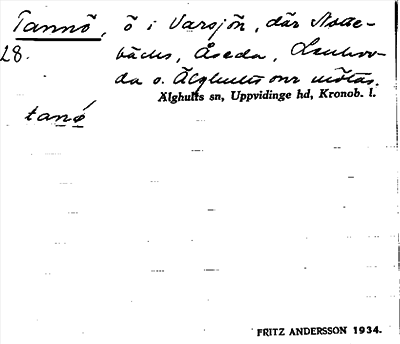 Tannö, ö i Varsjön, där Notte-
28. bäcks, Åseda, Lenhov-
da o. Älghults snr mötas.
Älghults sn, Uppvidinge hd, Kronob. l.
tanö
FRITZ ANDERSSON 1934.